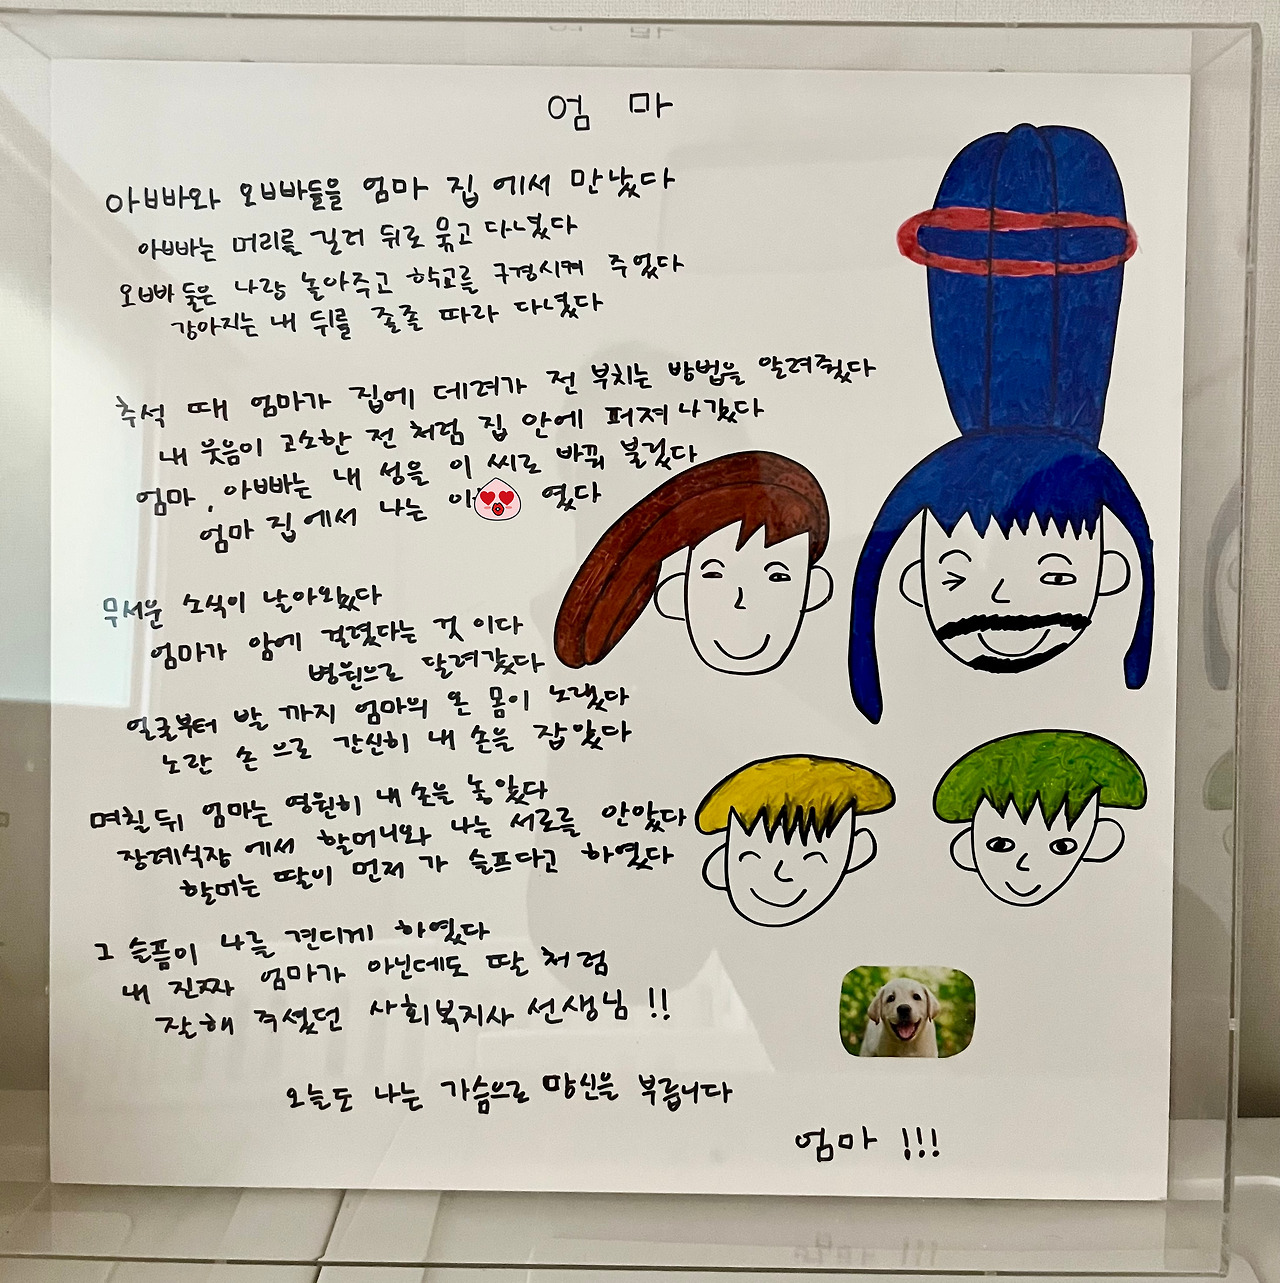 엄 마
아빠와 오빠들을 엄마 집 에서 만났다
아빠는 머리를 길러 뒤로 묶고 다녔다
오빠들은 나랑 놀아주고 학교를 구경시켜 주었다
강아지는 내 뒤를 졸졸 따라 다녔다
추석 때 엄마가 집에 데려가 전 부치는 방법을 알려줬다
내 웃음이 고소한 전 처럼 집 안에 퍼져 나갔다
엄마, 아빠는 내 성을 이 씨로 바꿔 불렀다
엄마 집 에서 나는 이 였다
무서운 소식이 날아왔다
엄마가 암에 걸렸다는 것 이다
병원으로 달려갔다
얼굴부터 발 까지 엄마의 온 몸이 노랬다
노란 손 으로 간신히 내 손을 잡았다
며칠 뒤 엄마는 영원히 내 손을 놓았다
장례식장 에서 할머니와 나는 서로를 안았다
할머는 딸이 먼저 가 슬프다고 하였다
그 슬픔이 나를 견디게 하였다
내 진짜 엄마가 아닌데도 딸 처럼
잘해 주셨던 사회복지사 선생님 !!
오늘도 나는 가슴으로 당신을 부릅니다
엄마 !!!